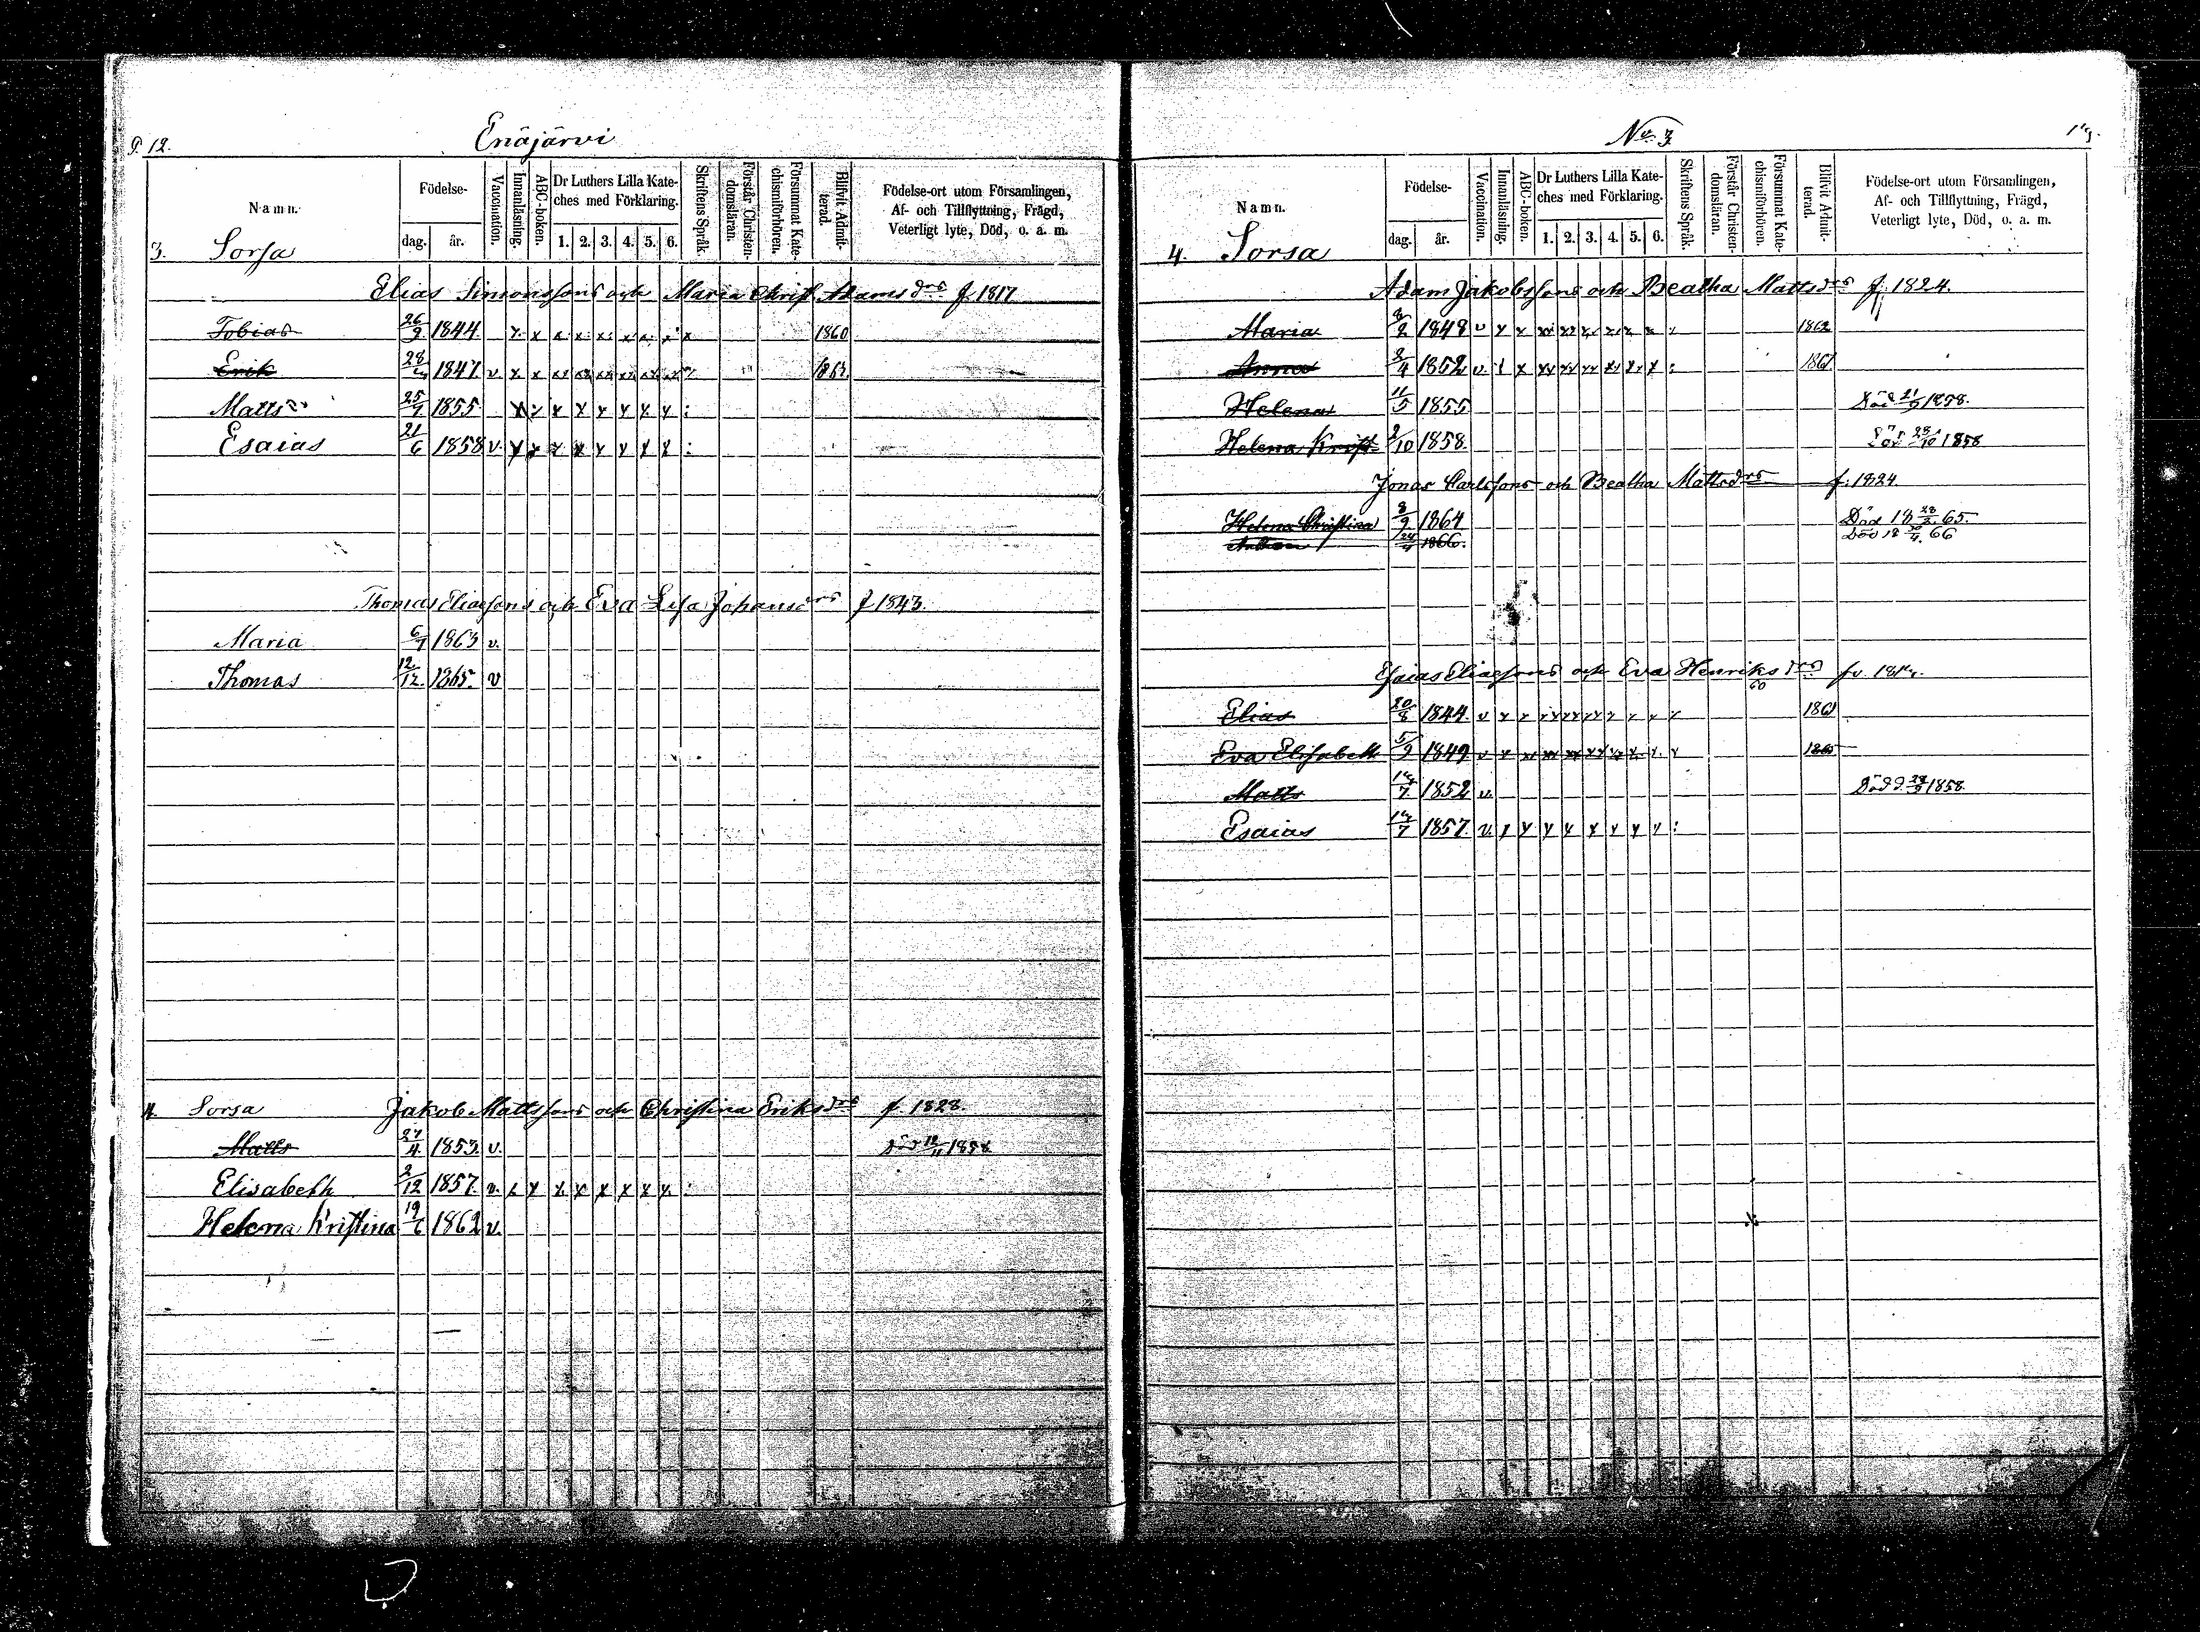 P. 12. Enäjärvi
Namn. Födelse- dag. år. Vaccination. Innanläsning. ABC-boken. Dr Luthers Lilla Kateches med Förklaring. 1. 2. 3. 4. 5. 6. Skriftens Språk. Förstår Christendomsläran. Försummat Katechismiförhören. Blifvit Admitterad. Födelse-ort utom Församlingen, Af- och Tillflyttning, Frägd, Veterligt lyte, Död, o. a. m.
3. Sorsa
Elias Simonssons och Maria Christ. Adamsdrs f. 1817
Tobias 26/9 1844. x x x x x x x x x 1860
Erik 1847. v. x x xx xx xx xx xx xx
Matts 25/7 1855 x x x x x x x x :
Esaias 21/6 1858 v. x x x x x x x x :
Thomas Eliassons och Eva Lisa Johansdrs f 1843.
Maria 6/7 1863 v.
Thomas 12/12. 1865. v
4. Sorsa Jakob Mattssons och Christina Eriksdrs f. 1828.
Matts 27/4. 1853. v. Död 12/11 1858
Elisabeth 2/12 1857. v. x x x x x x x x :
Helena Kristina 19/6 1862 v.
No. 3
Namn. Födelse- dag. år. Vaccination. Innanläsning. ABC-boken. Dr Luthers Lilla Kateches med Förklaring. 1. 2. 3. 4. 5. 6. Skriftens Språk. Förstår Christendomsläran. Försummat Katechismiförhören. Blifvit Admitterad. Födelse-ort utom Församlingen, Af- och Tillflyttning, Frägd, Veterligt lyte, Död, o. a. m.
4. Sorsa
Adam Jakobssons och Beatha Mattsdrs f. 1824.
Maria 8/2 1848 v x x xx xx x x x x : 1862
Anna 8/4 1852 v. x x xx xx xx xx x x :
Helena 11/5 1855 Död
Helena Krist. 2/10 1858. Död 28/10 1858
Jonas Carlssons och Beatha Mattsdrs f. 1824.
Helena Christina 8/9 1864 Död 18 28/2 65.
24/4 1866. Död 18 /4. 66
Esaias Eliassons och Eva Henriksdrs
Elias 20/8 1844. v x x xx xx xx x x x x 1861
Eva Elisabeth 5/9 1849 v x xx xx xx xx xx x x x 1865
Matts 1852 v. Död 1858.
Esaias 1857. v. x x x x x x x x :